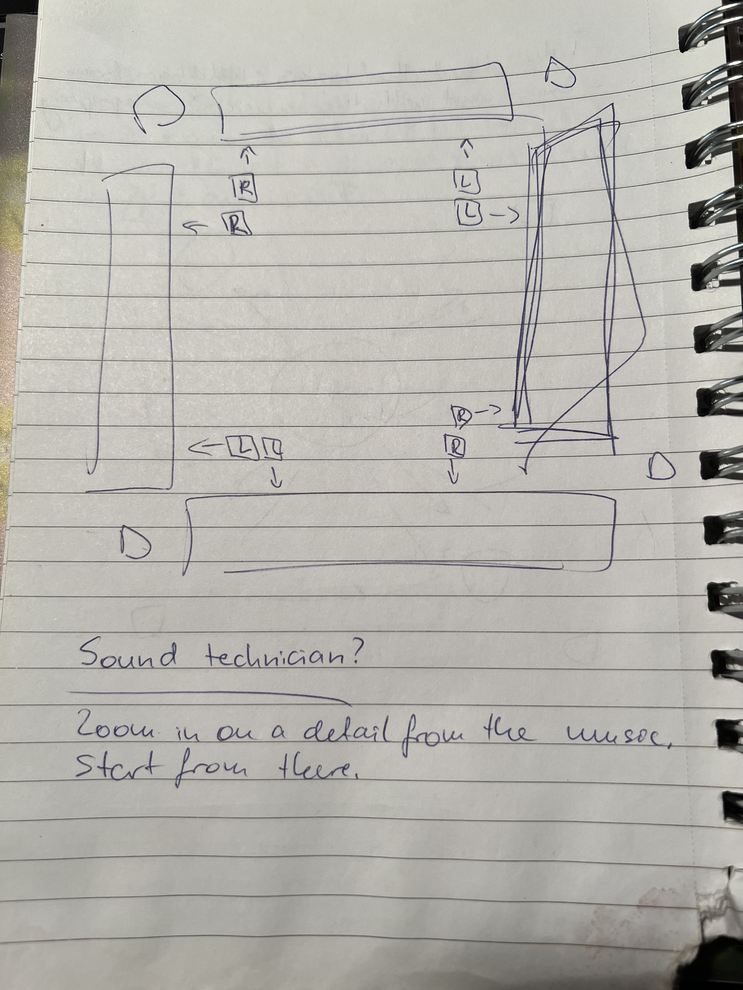 D
R L
R L
R
L L R
D
D
Sound technician?
Zoom in on a detail from the music.
Start from there.